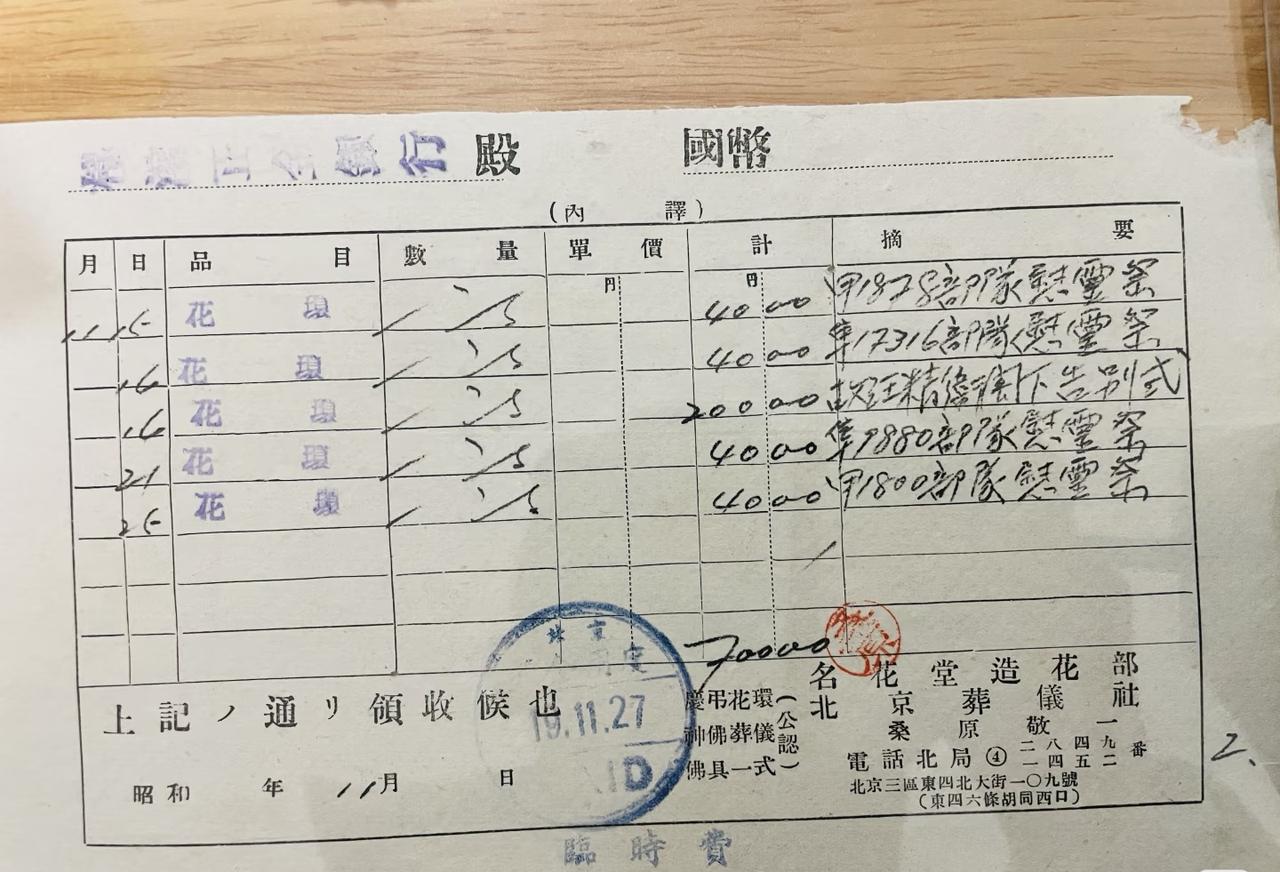 橫濱正金銀行 殿 國幣
(內譯)
月 日 品目 數量 單價 計 摘要
円 円
11 15 花環 1 40 00 甲1878部隊慰霊祭
16 花環 1 40 00 隼17316部隊慰霊祭
16 花環 1 200 00 故汪精衛閣下告別式
21 花環 1 40 00 隼9880部隊慰霊祭
25 花環 1 40 00 甲1800部隊慰霊祭
上記ノ通リ領收候也
昭和 年 11月 日
北京
19.11.27
PAID
臨時費
慶弔花環
神佛葬儀
佛具一式
(公認)
名花堂造花部
北京葬儀社
桑原敬一
電話北局④二八四九 一四五二番
北京三區東四北大街一〇九號
(東四六條胡同西口)
2、